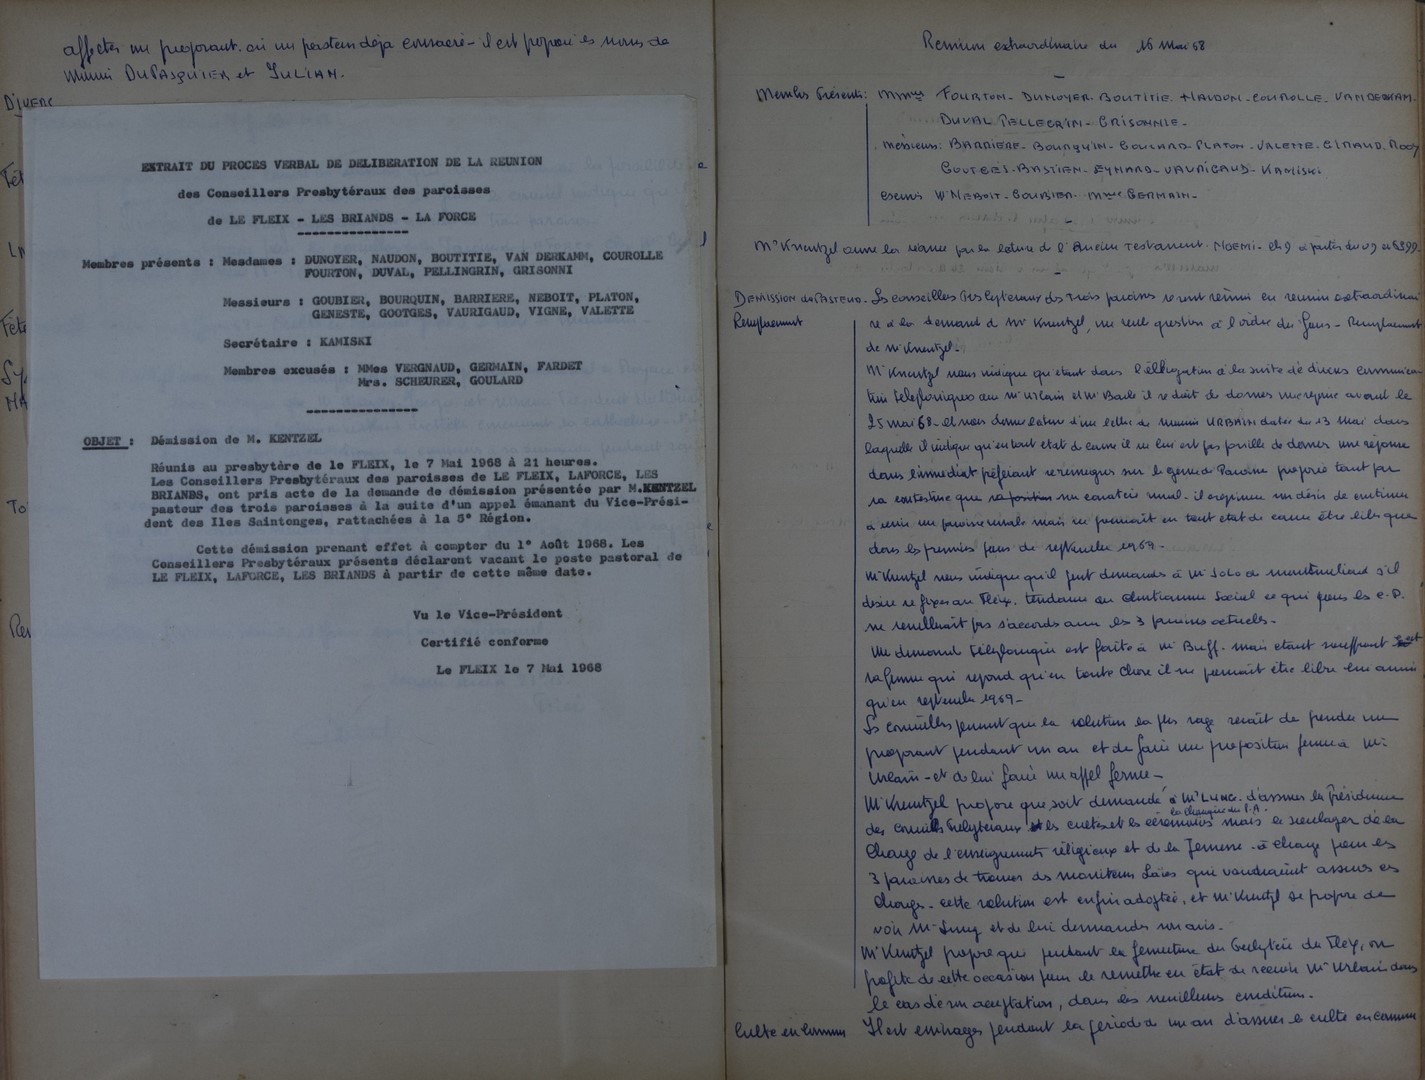 affecter un proposant. ou un pasteur déja consacré - il est proposé les noms de
DUPASQUIER et JULIAN.
DIVERS
EXTRAIT DU PROCES VERBAL DE DELIBERATION DE LA REUNION
des Conseillers Presbytéraux des paroisses
de LE FLEIX - LES BRIANDS - LA FORCE
Membres présents : Mesdames : DUNOYER, NAUDON, BOUTITIE, VAN DERKAMM, COUROLLE
FOURTON, DUVAL, PELLINGRIN, GRISONNI
Messieurs : GOUBIER, BOURQUIN, BARRIERE, NEBOIT, PLATON,
GENESTE, GOOTGES, VAURIGAUD, VIGNE, VALETTE
Secrétaire : KAMISKI
Membres excusés : MMes VERGNAUD, GERMAIN, FARDET
Mrs. SCHEURER, GOULARD
OBJET : Démission de M. KENTZEL
Réunis au presbytère de le FLEIX, le 7 Mai 1968 à 21 heures.
Les Conseillers Presbytéraux des paroisses de LE FLEIX, LAFORCE, LES
BRIANDS, ont pris acte de la demande de démission présentée par M.KENTZEL
pasteur des trois paroisses à la suite d'un appel émanant du Vice-Prési-
dent des Iles Saintonges, rattachées à la 5° Région.
Cette démission prenant effet à compter du 1° Août 1968. Les
Conseillers Presbytéraux présents déclarent vacant le poste pastoral de
LE FLEIX, LAFORCE, LES BRIANDS à partir de cette même date.
Vu le Vice-Président
Certifié conforme
Le FLEIX le 7 Mai 1968
Reunion extraordinaire du 16 Mai 68
Membres Présents: Mmes FOURTON - DUNOYER - BOUTITIE - NAUDON - COUROLLE - VANDERKAM.
DUVAL PELLEGRIN - GRISONNIE -
Messieurs: BARRIERE - BOURQUIN - GOULARD - PLATON - VALETTE - GIRAUD.
GOUTGES - BASTIEN - EYNARD - VAURIGAUD - KAMISKI
excusés Mr NEBOIT - GOUBIER - Mme GERMAIN -
Mr Kneutzel ouvre la séance par la lecture de l'Ancien Testament. NOEMI - ch 9 à partir du v9
DEMISSION du PASTEUR - Les conseillers Presbyteraux des trois paroisses se sont réunis en reunion extraordinai
Remplacement re à la demande de Mr Kneutzel, une seule question à l'ordre du jour - Remplacement
de Mr Kneutzel.
Mr Kneutzel nous indique qu'etant dans l'obligation à la suite de divers communica
tion telephoniques avec Mr Urbain et Mr il de donner une reponse avant le
25 mai 68 - et nous donne lecture d'une lettre de Monsieur URBAIN datée du 13 Mai dans
laquelle il indique qu'en tout etat de cause il ne lui est pas possible de donner une réponse
dans l'immediat préférant se renseigner sur le genre de Paroisse proposée tant par
sa contexture que son caractère rural - il exprime un désir de continuer
à servir une paroisse rurale mais ne pourrait en tout etat de cause être libre que
dans les premiers jours de septembre 1969 -
Mr Kneutzel nous indique qu'il faut demander à Mr s'il
désire se fixer au Fleix. tendance au Christianisme Social ce qui pour les C.P.
ne semblerait pas s'accorder avec les 3 paroisses actuelles -
Une demande téléphonique est faite à Mr Buff. mais etant souffrant c'est
sa femme qui repond qu'en toute chose il ne pourrait être libre lui aussi
qu'en septembre 1969 -
Les conseillers pensent que la solution la plus sage serait de prendre un
proposant pendant un an et de faire une proposition ferme à Mr
Urbain - et de lui faire un appel ferme -
Mr Kneutzel propose que soit demandé à Mr Lung. d'assurer la Présidence
des conseils Presbyteraux et les cultes et les cérémonies mais le soulager de la
charge de l'enseignement réligieux et de la Jeunesse - à charge pour les
3 paroisses de trouver des moniteurs Laïcs qui voudraient assurer ces
charges - cette solution est enfin adoptée, et Mr Kneutzel se propose de
voir Mr Lung et de lui demander son avis.
Mr Kneutzel propose que pendant la fermeture du Presbytère du Fleix, on
profite de cette occasion pour le remettre en état de recevoir Mr Urbain dans
le cas de son acceptation, dans les meilleures conditions.
Culte en Commun Il est envisagé pendant la période d'un an d'assurer le culte en commun